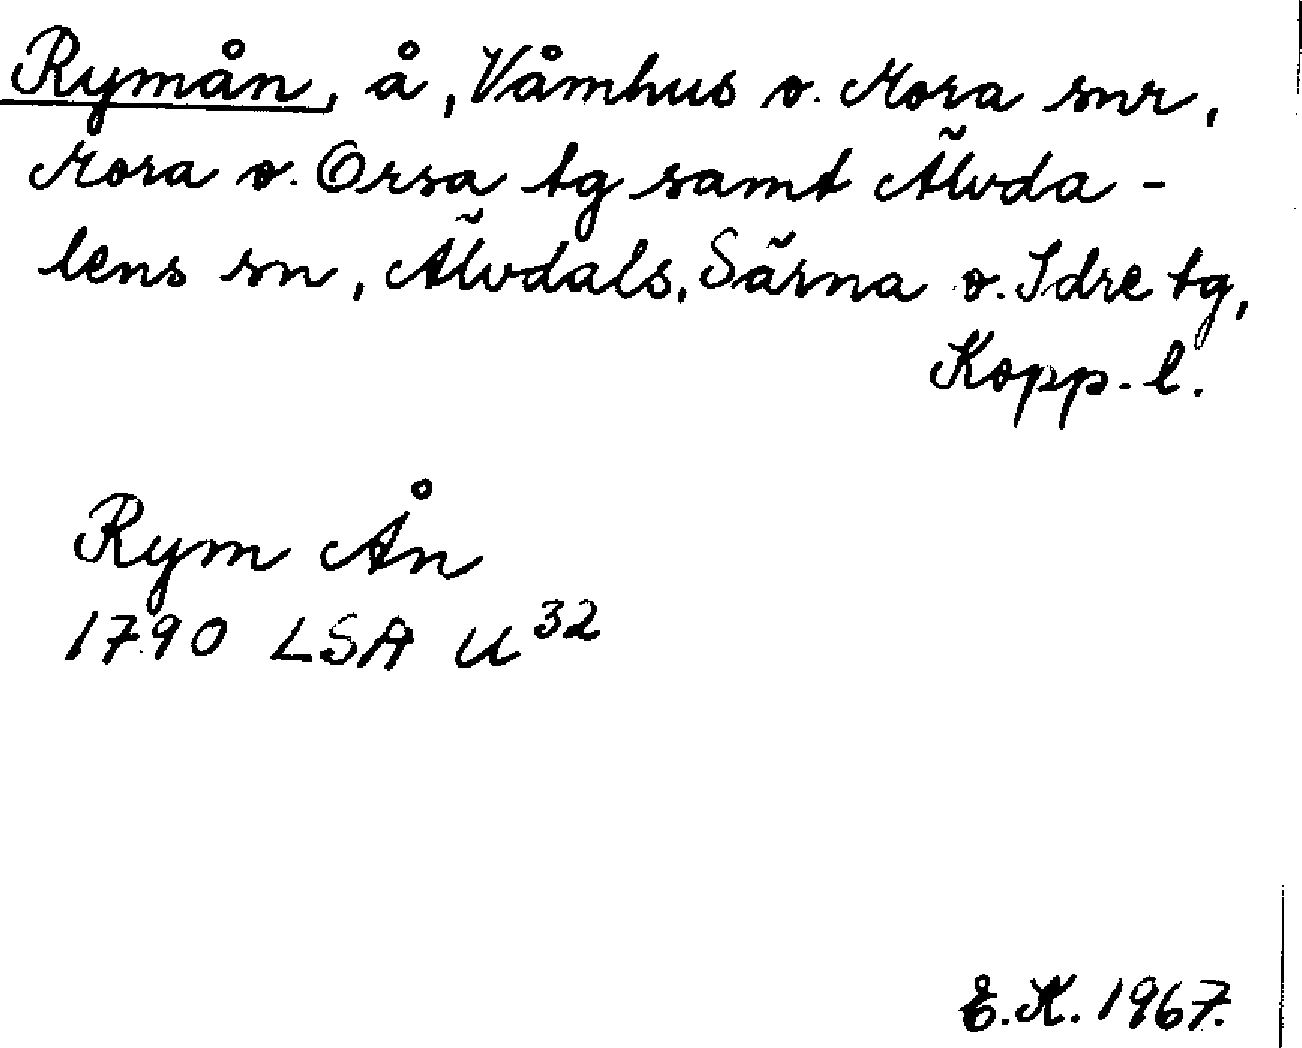 Rymån, å, Våmhus o. Mora snr,
Mora o. Orsa tg samt Älvda-
lens sn, Älvdals, Särna o. Idre tg,
Kopp. l.
Rym Ån
1790 LSA U³²
E.K. 1967.